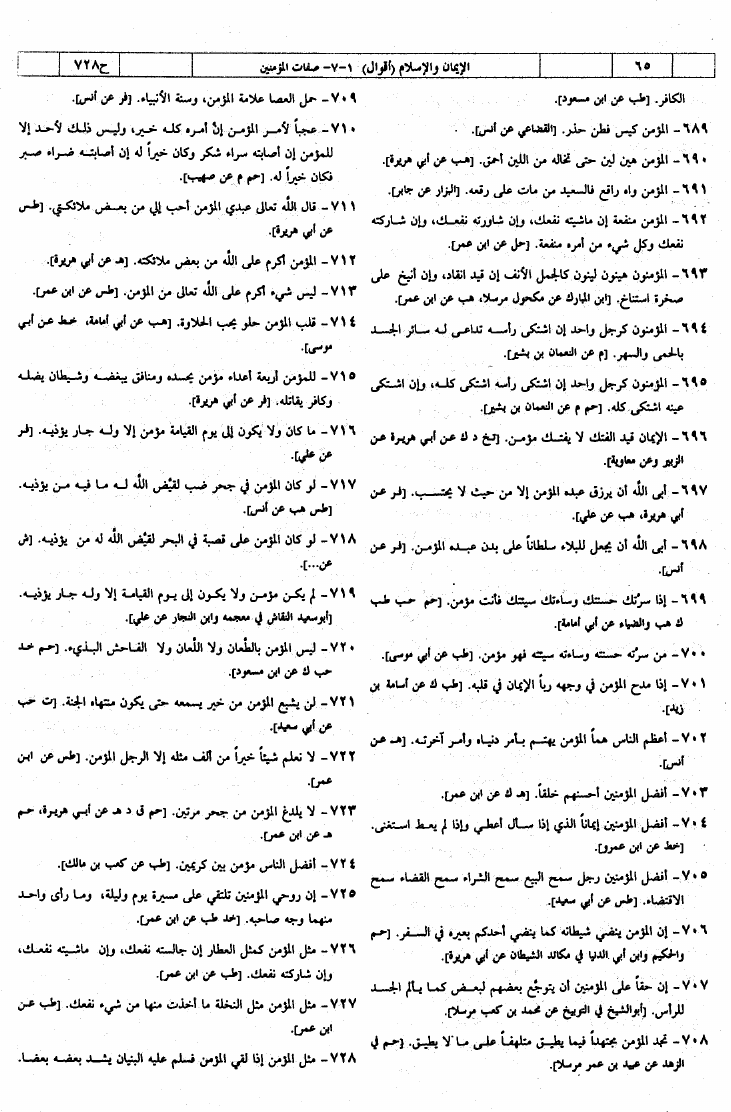 ٦٥ الإيمان والإسلام (أقوال) ١-٧- صفات المؤمنين ح٧٢٨
الكافر. [طب عن ابن مسعود].
٦٨٩- المؤمن كيس فطن حذر. [القضاعي عن أنس].
٦٩٠- المؤمن هين لين حتى تخاله من اللين أحمق. [هب عن أبي هريرة].
٦٩١- المؤمن واه راقع فالسعيد من مات على رقعه. [البزار عن جابر].
٦٩٢- المؤمن منفعة إن ماشيته نفعك، وإن شاورته نفعك، وإن شاركته
نفعك وكل شيء من أمره منفعة. [حل عن ابن عمر].
٦٩٣- المؤمنون هينون لينون كالجمل الأنف إن قيد انقاد، وإن أنيخ على
صخرة استناخ. [ابن المبارك عن مكحول مرسلا، هب عن ابن عمر].
٦٩٤- المؤمنون كرجل واحد إن اشتكى رأسه تداعى له سائر الجسد
بالحمى والسهر. [م عن النعمان بن بشير].
٦٩٥- المؤمنون كرجل واحد إن اشتكى رأسه اشتكى كله، وإن اشتكى
عينه اشتكى كله. [حم م عن النعمان بن بشير].
٦٩٦- الإيمان قيد الفتك لا يفتك مؤمن. [تخ د ك عن أبي هريرة عن
الزبير وعن معاوية].
٦٩٧- أبى الله أن يرزق عبده المؤمن إلا من حيث لا يحتسب. [فر عن
أبي هريرة، هب عن علي].
٦٩٨- أبى الله أن يجعل للبلاء سلطاناً على بدن عبده المؤمن. [فر عن
أنس].
٦٩٩- إذا سرّتك حسنتك وساءتك سيئتك فأنت مؤمن. [حم حب طب
ك هب والضياء عن أبي أمامة].
٧٠٠- من سرّته حسنته وساءته سيئته فهو مؤمن. [طب عن أبي موسى].
٧٠١- إذا مدح المؤمن في وجهه ربا الإيمان في قلبه. [طب ك عن أسامة بن
زيد].
٧٠٢- أعظم الناس هماً المؤمن يهتم بأمر دنياه وأمر آخرته. [هـ عن
أنس].
٧٠٣- أفضل المؤمنين أحسنهم خلقاً. [هـ ك عن ابن عمر].
٧٠٤- أفضل المؤمنين إيماناً الذي إذا سأل أعطي وإذا لم يعط استغنى.
[خط عن ابن عمرو].
٧٠٥- أفضل المؤمنين رجل سمح البيع سمح الشراء سمح القضاء سمح
الاقتضاء. [طس عن أبي سعيد].
٧٠٦- إن المؤمن ينضي شيطانه كما ينضي أحدكم بعيره في السفر. [حم
والحكيم وابن أبي الدنيا في مكائد الشيطان عن أبي هريرة].
٧٠٧- إن حقاً على المؤمنين أن يتوجّع بعضهم لبعض كما يألم الجسد
للرأس. [أبوالشيخ في التوبيخ عن محمد بن كعب مرسلا].
٧٠٨- تجد المؤمن مجتهداً فيما يطيق متلهفاً على ما لا يطيق. [حم في
الزهد عن عبيد بن عمر مرسلا].
٧٠٩- حمل العصا علامة المؤمن، وسنة الأنبياء. [فر عن أنس].
٧١٠- عجباً لأمر المؤمن إنّ أمره كله خير، وليس ذلك لأحد إلا
للمؤمن إن أصابته سراء شكر وكان خيراً له إن أصابته ضراء صبر
فكان خيراً له. [حم م عن صهيب].
٧١١- قال الله تعالى عبدي المؤمن أحب إلي من بعض ملائكتي. [طس
عن أبي هريرة].
٧١٢- المؤمن أكرم على الله من بعض ملائكته. [هـ عن أبي هريرة].
٧١٣- ليس شيء أكرم على الله تعالى من المؤمن. [طس عن ابن عمر].
٧١٤- قلب المؤمن حلو يحب الحلاوة. [هب عن أبي أمامة، خط عن أبي
موسى].
٧١٥- للمؤمن أربعة أعداء مؤمن يحسده ومنافق يبغضه وشيطان يضله
وكافر يقاتله. [فر عن أبي هريرة].
٧١٦- ما كان ولا يكون إلى يوم القيامة مؤمن إلا وله جار يؤذيه. [فر
عن علي].
٧١٧- لو كان المؤمن في جحر ضب لقيّض الله له ما فيه من يؤذيه.
[طس هب عن أنس].
٧١٨- لو كان المؤمن على قصبة في البحر لقيّض الله له من يؤذيه. [ش
عن...].
٧١٩- لم يكن مؤمن ولا يكون إلى يوم القيامة إلا وله جار يؤذيه.
[أبوسعيد النقاش في معجمه وابن النجار عن علي].
٧٢٠- ليس المؤمن بالطعان ولا اللعان ولا الفاحش البذيء. [حم خد
حب ك عن ابن مسعود].
٧٢١- لن يشبع المؤمن من خير يسمعه حتى يكون منتهاه الجنة. [ت حب
عن أبي سعيد].
٧٢٢- لا نعلم شيئاً خيراً من ألف مثله إلا الرجل المؤمن. [طس عن ابن
عمر].
٧٢٣- لا يلدغ المؤمن من جحر مرتين. [حم ق د هـ عن أبي هريرة، حم
هـ عن ابن عمر].
٧٢٤- أفضل الناس مؤمن بين كريمين. [طب عن كعب بن مالك].
٧٢٥- إن روحي المؤمنين تلتقي على مسيرة يوم وليلة، وما رأى واحد
منهما وجه صاحبه. [خد طب عن ابن عمر].
٧٢٦- مثل المؤمن كمثل العطار إن جالسته نفعك، وإن ماشيته نفعك،
وإن شاركته نفعك. [طب عن ابن عمر].
٧٢٧- مثل المؤمن مثل النخلة ما أخذت منها من شيء نفعك. [طب عن
ابن عمر].
٧٢٨- مثل المؤمن إذا لقي المؤمن فسلم عليه البنيان يشد بعضه بعضا.